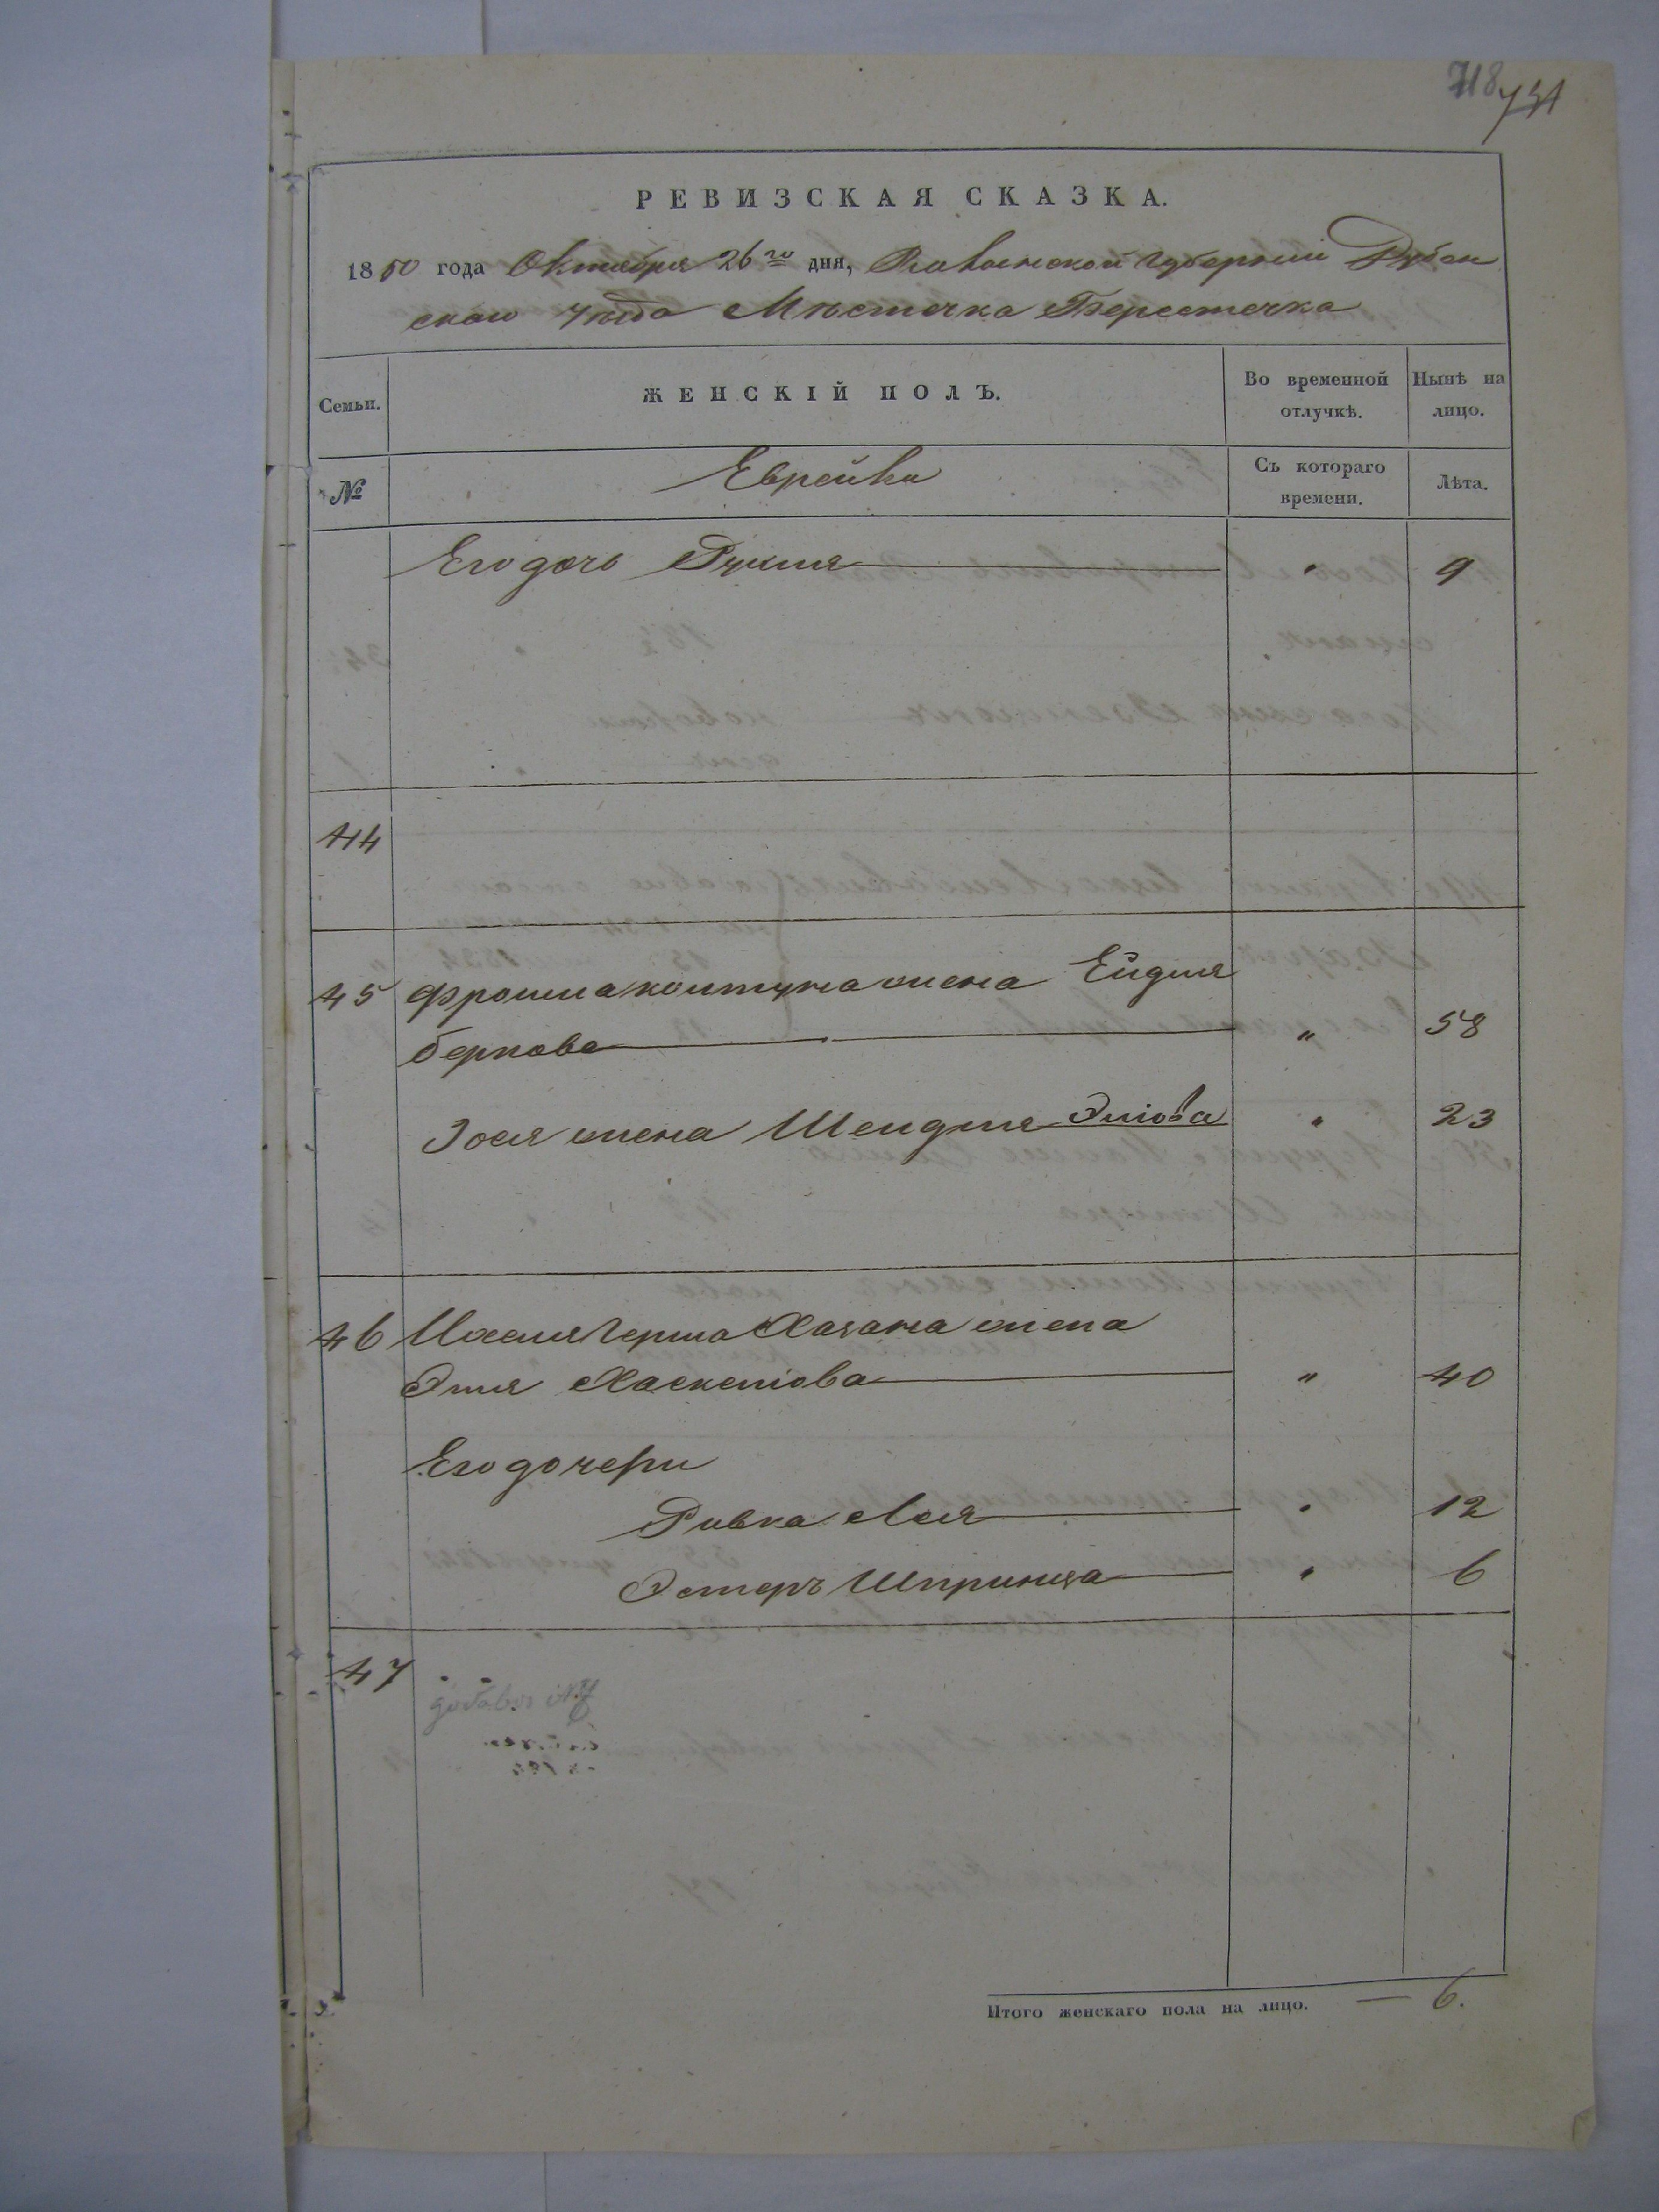 718 731
РЕВИЗСКАЯ СКАЗКА.
1850 года Октября 26го дня, Волынской губерніи Дубен
скаго уѣзда Мѣстечка Берестечка
Семьи.
ЖЕНСКІЙ ПОЛЪ.
Во временной отлучкѣ.
Нынѣ на лицо.
№
Еврейки
Съ котораго времени.
Лѣта.
Его дочь Рухля „ 9
44
45 Фроима колтуна жена Ейдля
беркова „ 58
Зося жена Шейдля Элiова „ 23
46 Иося Герша Хазана жена
Этя Хаскелiова „ 40
Его дочери
Ривка Лея „ 12
Эстеръ Шпринца „ 6
47
Итого женскаго пола на лицо. — 6.